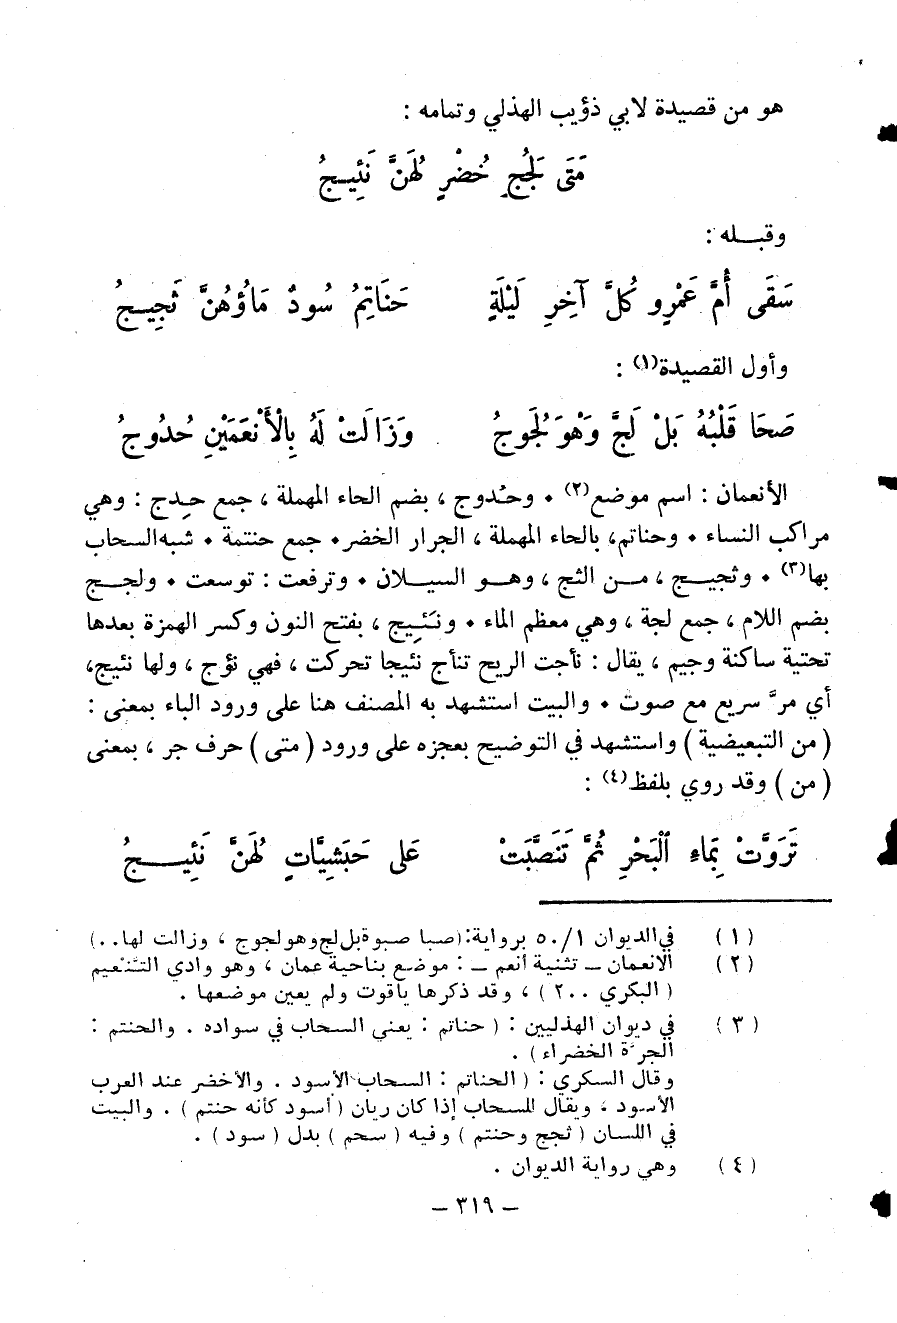 هو من قصيدة لابي ذؤيب الهذلي وتمامه :
مَتَى لُجُجٍ خُضْرٍ لَهُنَّ نَئِيـجُ
وقبـله :
سَقَى أُمَّ عَمْرٍو كُلَّ آخِرِ لَيْلَةٍ حَنَاتِمُ سُودٌ مَاؤُهُنَّ ثَجِيـجُ
وأول القصيدة(١) :
صَحَا قَلْبُهُ بَلْ لَجَّ وَهْوَ لَجُوجُ وَزَالَتْ لَهُ بِالْأَنْعَمَيْنِ حُدُوجُ
الأنعمان : اسم موضع(٢) • وحُدوج ، بضم الحاء المهملة ، جمع حِدج : وهي
مراكب النساء • وحناتم، بالحاء المهملة ، الجرار الخضر• جمع حنتمة • شبه السحاب
بها(٣) • وثجيـج ، مـن الثج ، وهـو السيـلان • وترفعت : توسعت • ولجـج
بضم اللام ، جمع لجة ، وهي معظم الماء • ونَئِيج ، بفتح النون وكسر الهمزة بعدها
تحتية ساكنة وجيم ، يقال : نأجت الريح تنأج نئيجا تحركت ، فهي نؤج ، ولها نئيج،
أي مرَّ سريع مع صوت • والبيت استشهد به المصنف هنا على ورود الباء بمعنى :
( من التبعيضية ) واستشهد في التوضيح بعجزه على ورود ( متى ) حرف جر ، بمعنى
( من ) وقد روي بلفظ(٤) :
تَرَوَّتْ بِمَاءِ ٱلبَحْرِ ثُمَّ تَنَصَّبَتْ عَلى حَبَشِيَّاتٍ لَهُنَّ نَئِيـــجُ
(١) في الديوان ٥٠/١ برواية: (صبا صبوة بل لج وهو لجوج ، وزالت لها..)
(٢) الانعمان ــ تثنية أنعم ــ : موضع بناحية عمان ، وهو وادي التَّنْعيم
( البكري ٢٠٠ ) ، وقد ذكرها ياقوت ولم يعين موضعها .
(٣) في ديوان الهذليين : ( حناتم : يعني السحاب في سواده . والحنتم :
الجرَّة الخضراء ) .
وقال السكري : ( الحناتم : السحاب الأسود . والأخضر عند العرب
الأسود ، ويقال للسحاب إذا كان ريان ( أسود كأنه حنتم ) . والبيت
في اللسان ( ثجج وحنتم ) وفيه ( سحم ) بدل ( سود ) .
(٤) وهي رواية الديوان .
ـ ٣١٩ ـ